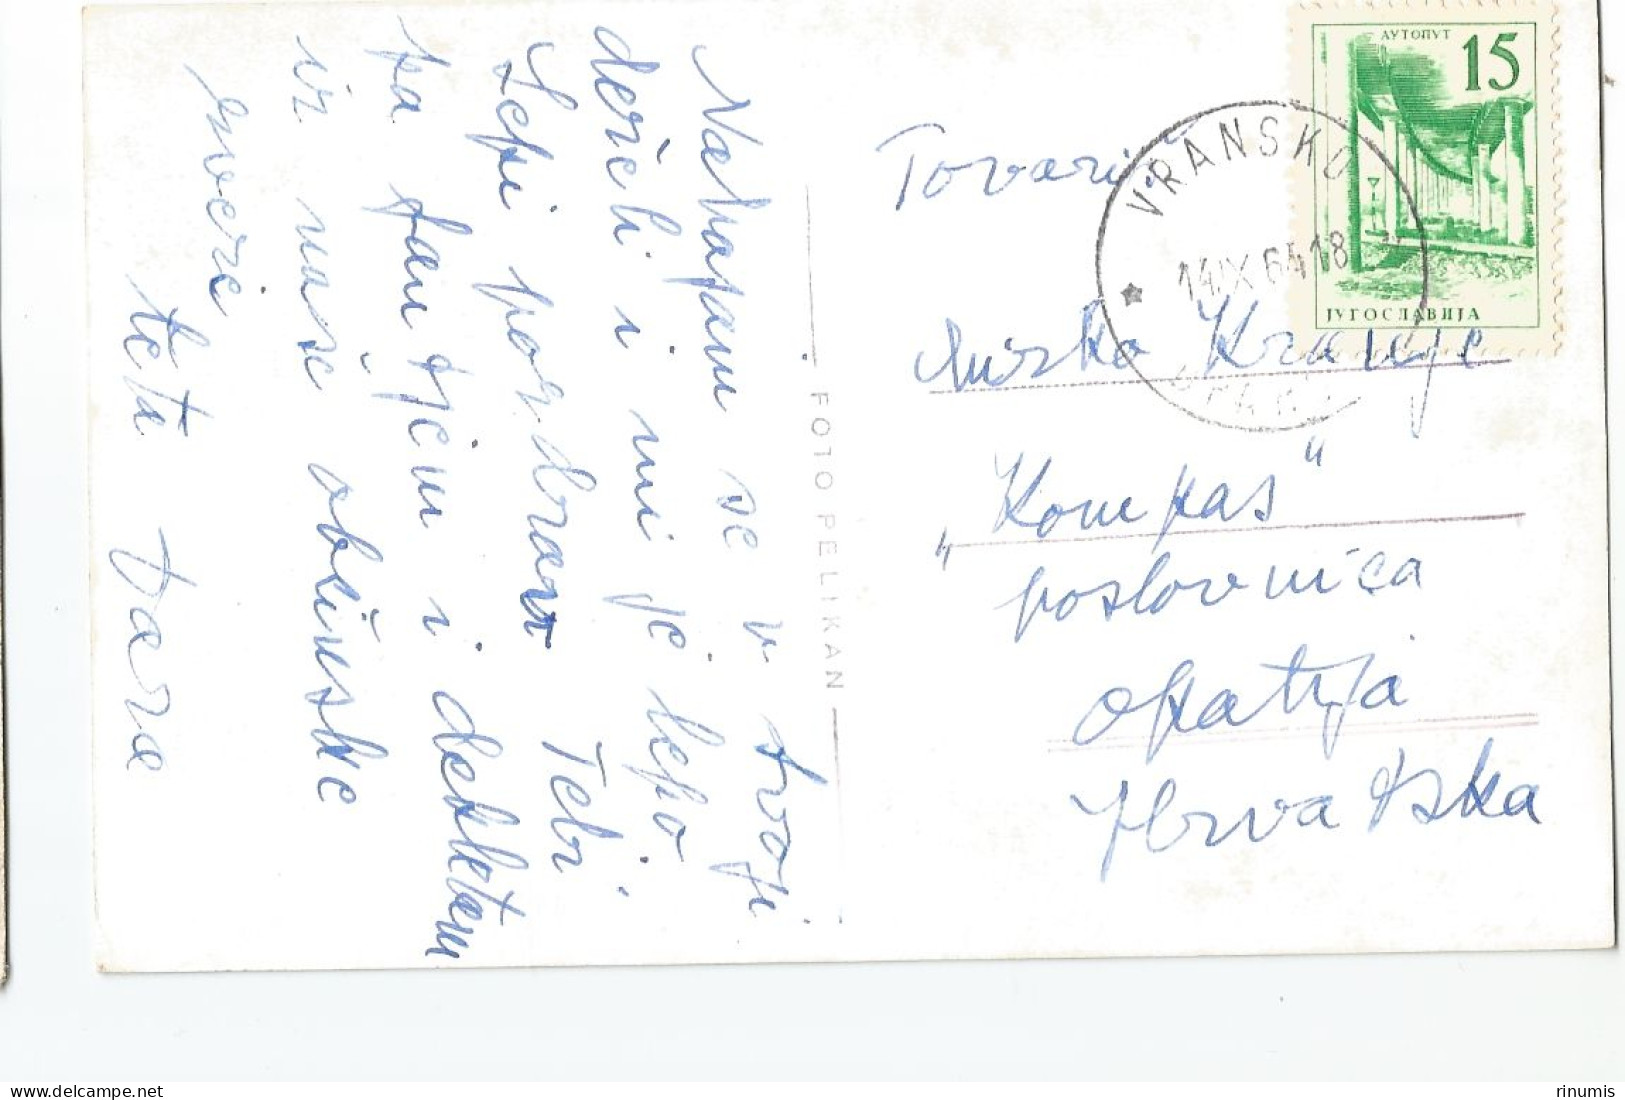 Nahajam se v tvoji
deželi i mi je lepo
Lepi pozdrav Tebi
pa fantjem i dekletam
iz naše občinske
zveze
teta Dara
FOTO PELIKAN
АУТОПУТ
15
ЈУГОСЛАВИЈА
VRANSKO
14.IX.64 18
Tovariš
Mirko Kralje
„Kompas"
poslovnica
Opatija
Hrvatska
rinumis